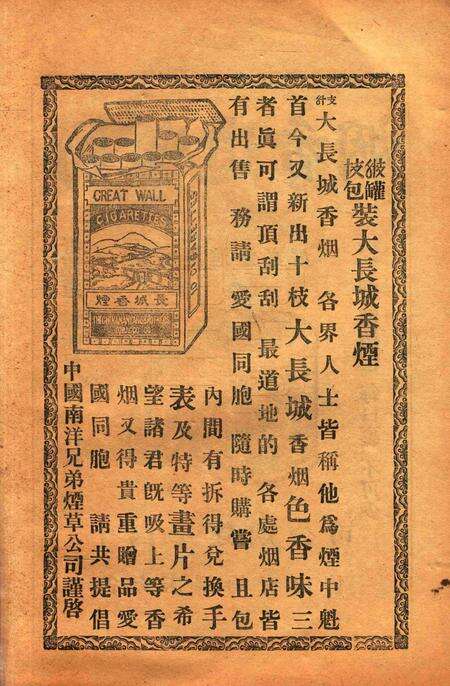 罐包裝大長城香煙
大長城香烟 各界人士皆稱他為煙中魁
首今又新出十枝大長城香烟色香味三
者眞可謂頂刮刮 最道地的 各處烟店皆
有出售 務請 愛國同胞 隨時購嘗 且包
內間有拆得兌換手
表及特等畫片之希
望諸君旣吸上等香
烟又得貴重贈品愛
國同胞 請共提倡
中國南洋兄弟煙草公司謹啓
GREAT WALL
CIGARETTES
煙香城長
CIGARETTES